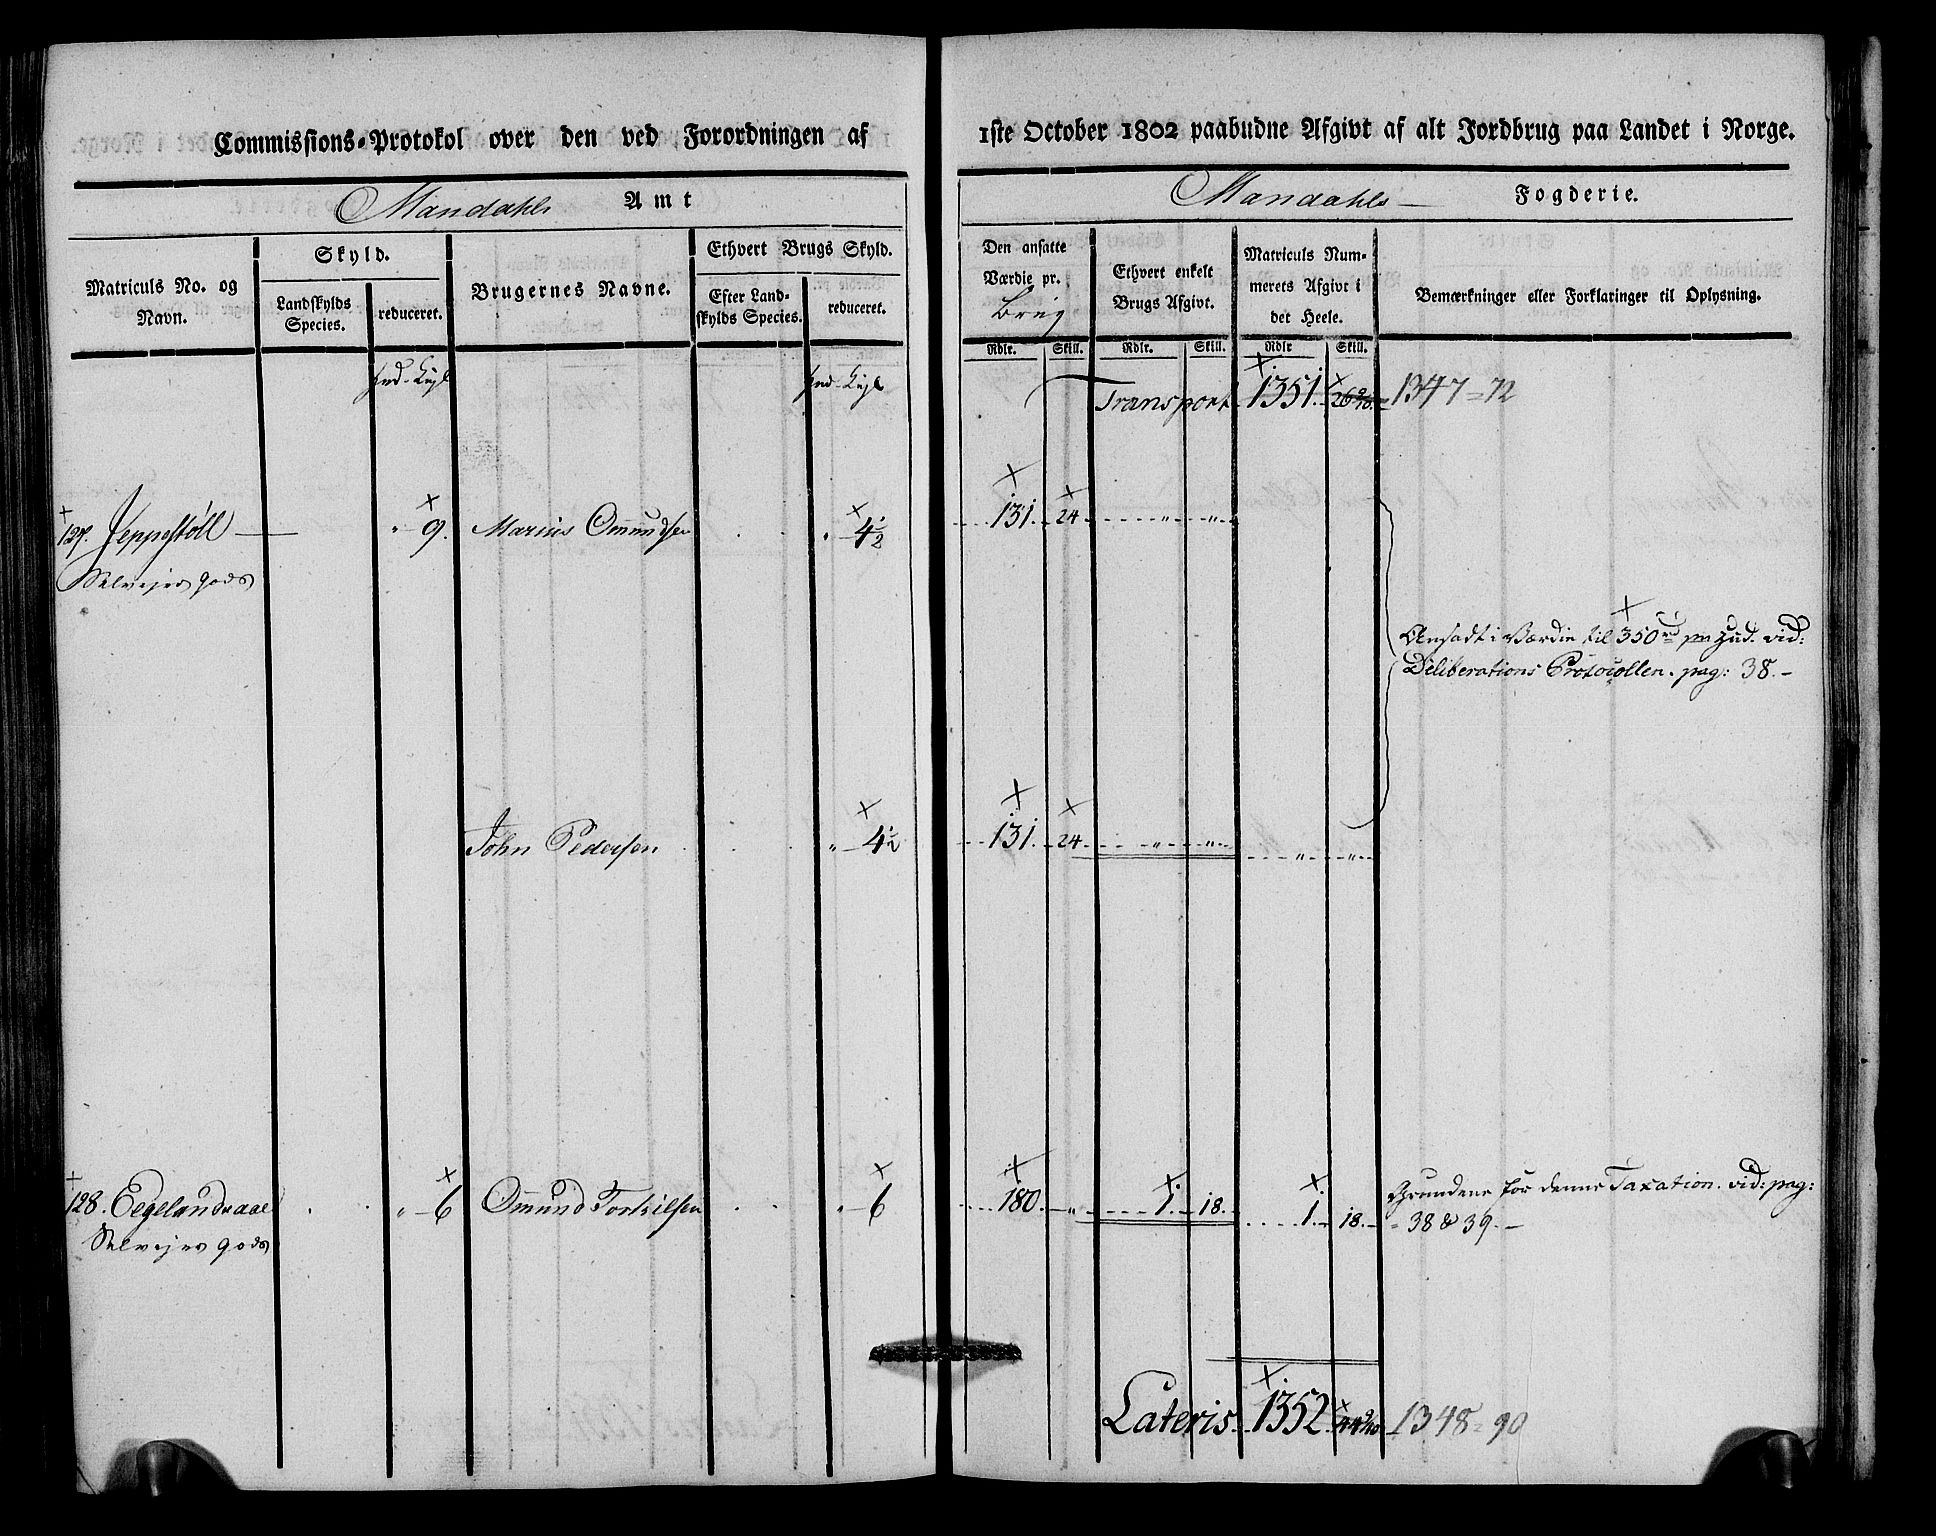 Commissions-Protokol over den ved Forordningen af
Mandahls Amt
Matriculs No. og Navn.
Skyld.
Landskylds Species.
reduceret.
Brugernes Navne.
Ethvert Brugs Skyld.
Efter Landskylds Species.
reduceret.
127. Jeppestöll — " 9. Marius Omundsen " 4½
Selvejer gods
John Pedersen " 4½
128. Eegelandsaae " 6 Omund Torkilsen " 6
Selvejer gods
1ste October 1802 paabudne Afgivt af alt Jordbrug paa Landet i Norge.
Mandahls — Fogderie.
Den ansatte Værdie pr.
Brug
Ethvert enkelt Brugs Afgivt.
Matriculs Nummerets Afgivt i det Heele.
Bemærkninger eller Forklaringer til Oplysning.
Rdlr. Skill. Rdlr. Skill. Rdlr Skill.
Transport 1351. 1347 = 72
131. 24 " "
Ansadt i Værdie til 350 rd pr Hud. vid:
Deliberations Protocollen. pag: 38. –
131. 24 " " " "
180. " 1. 18. 1. 18. Grundene for denne Taxation. vid: pag:
38 & 39. –
Lateris. 1352 1348 = 90